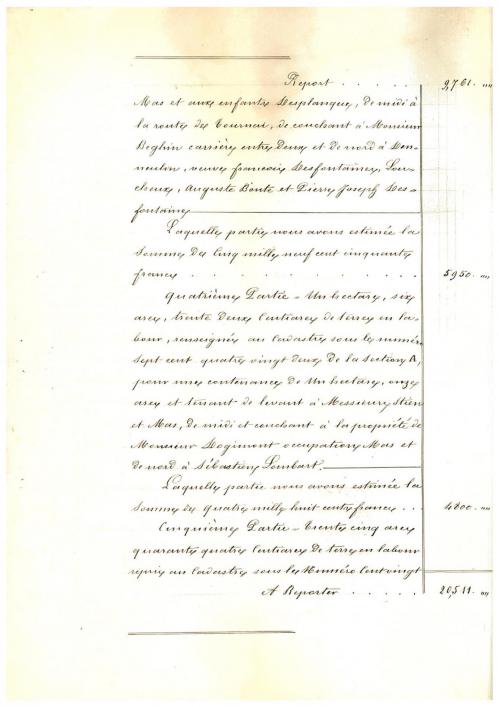 Report . . . . . . 9,761. "
Mas et aux enfants Desplanque, de midi à
la route de Tournai, de couchant à Monsieur
Beghin carrière entre deux et de nord à
veuve francois Desfontaines, Lou-
cheux, Auguste Bonte et Pierre Joseph Des=
fontaine
Laquelle partie nous avons estimée la
Somme de Cinq mille neuf cent cinquante
francs . . . . . . . . . . . 5,950. "
Quatrième Partie = Un hectare, six
ares, trente deux Centiares de terre en la=
bour, renseignée au Cadastre sous le numéro
Sept cent quatre vingt deux de la Section A,
pour une contenance de Un hectare, onze
ares et tenant de levant à Messieurs Stien
et Mas, de midi et couchant à la propriété de
Monsieur Dogimont occupation Mas et
de nord à Sébastien Lombart.
Laquelle partie nous avons estimée la
Somme de quatre mille huit cents francs . . 4800. "
Cinquième Partie = Trente cinq ares
quarante quatre Centiares De terre en labour
repris au Cadastre sous le Numéro Cent vingt
A Reporter . . . . . 20,511. "